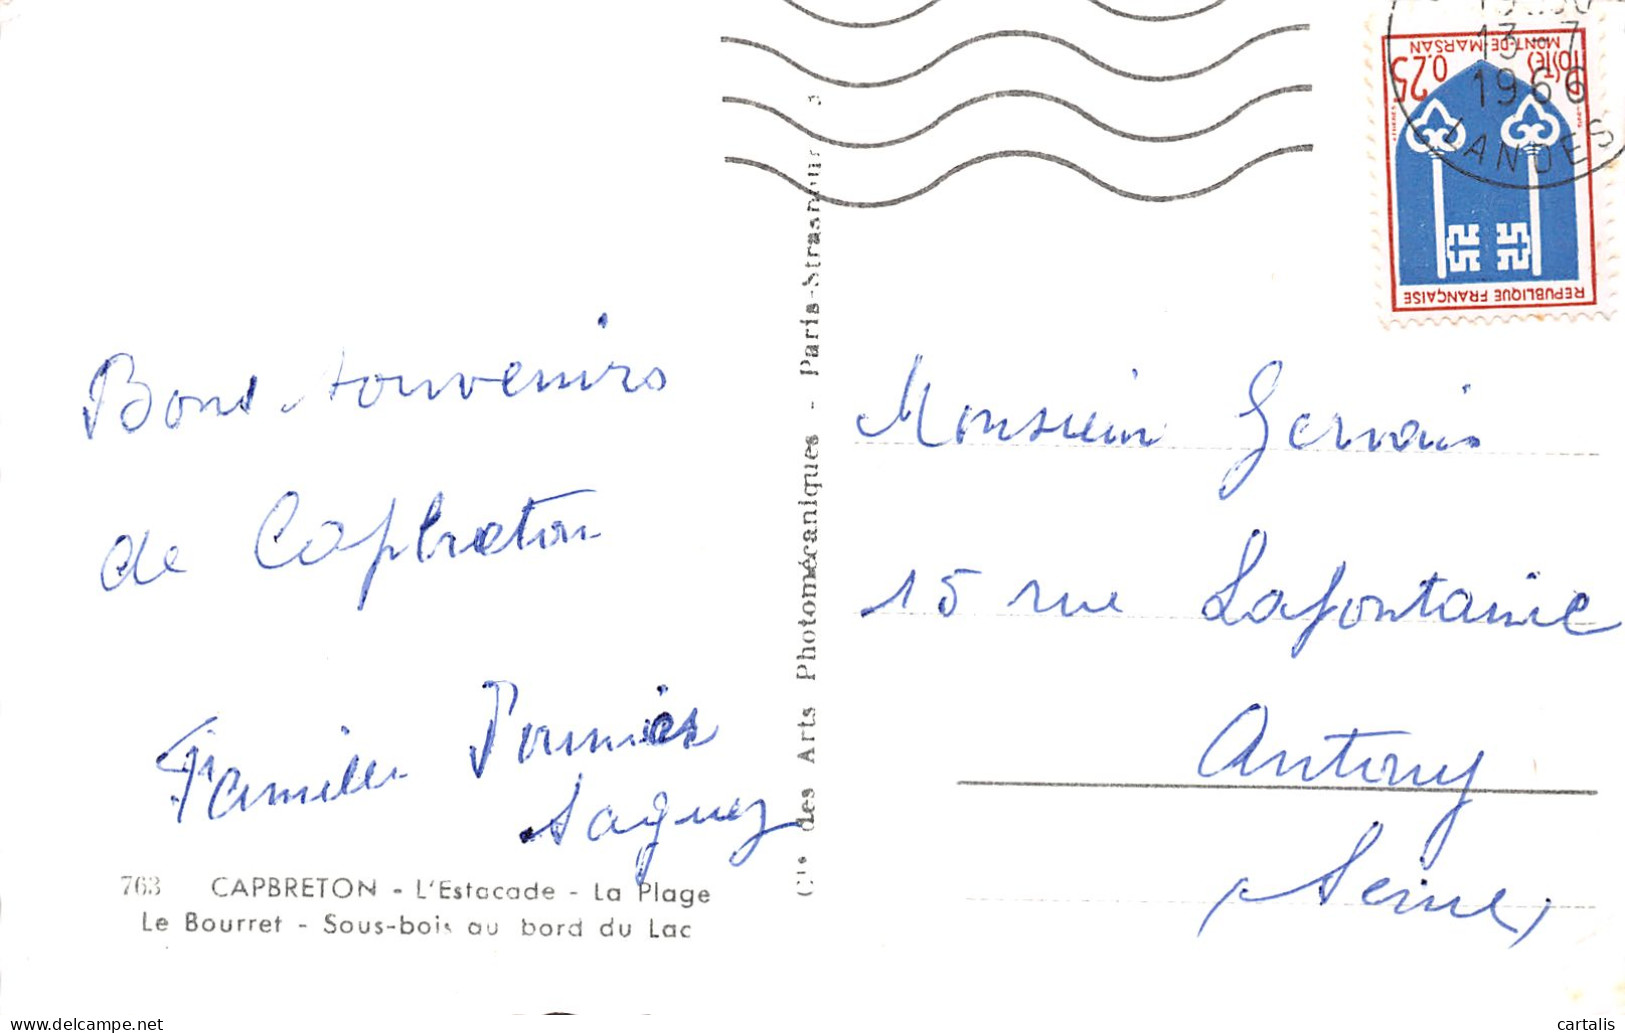 Bons souvenirs
de Capbreton
Famille
Saguez
763 CAPBRETON - L'Estacade - La Plage
Le Bourret - Sous-bois au bord du Lac
Cie des Arts Photomécaniques - Paris-Strasbourg
13-7
1966
LANDES
MONT-DE-MARSAN
POSTES
0.25
REPUBLIQUE FRANÇAISE
Monsieur Gervais
15 rue Lafontaine
Antony
(Seine)
Ile de France - cartalis